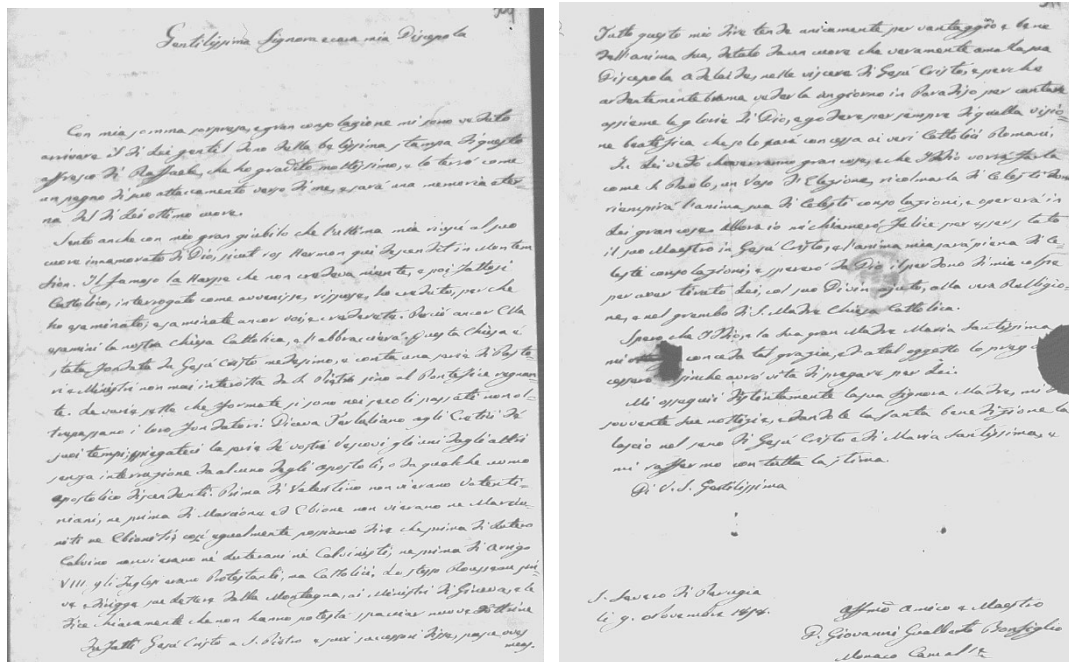 Gentilissima Signora e cara mia Discepola
Con mia somma sorpresa, e gran consolazione mi sono veduto
arrivare il di Lei gentil dono della bellissima stampa di questo
affresco di Raffaele, che ho gradito moltissimo, e lo terrò come
un pegno di suo attaccamento verso di me, e sarà una memoria eter-
na del di Lei ottimo cuore.
Sento anche con mio gran giubilo che l'ultima mia riuscì al suo
cuore innamorato di Dio, sicut ros Hermon qui descendit in Montem
Sion. Il famoso la Harpe che non credeva niente, e poi fattosi
Cattolico, interrogato come avvenisse, rispose, ho creduto, perche
ho esaminato; esaminate ancor voi, e crederete. Perciò ancor Ella
esamini la nostra Chiesa Cattolica, e l'abbraccierà. Questa Chiesa è
stata fondata da Gesù Cristo medesimo, e conta una serie di Pasto-
ri e Ministri non mai interotta da S. Pietro sino al Pontefice regnan-
te. Le varie sette che formate si sono nei secoli passati non ol-
trepassano i loro fondatori. Diceva Tertuliano agli Eretici de
suoi tempi; spiegateci la serie de vostri Vescovi gli uni dagli altri
senza interruzione da alcuno degli Apostoli, o da qualche uomo
apostolico discendenti. Prima di Valentino non vi erano Valenti-
niani, ne prima di Marcione ed Ebione non vi erano ne Marcio-
niti ne Ebioniti; così egualmente possiamo dire che prima di Lutero
Calvino non vi erano ne Luterani ne Calvinisti, ne prima di Arrigo
VIII gli Inglesi erano Protestanti, ma Cattolici. Lo stesso Rousseau scri-
ve e dirigge sue lettere dalla Montagna, ai Ministri di Ginevra, e le
dice chiaramente che non hanno potestà spacciar nuove dottrine
In fatti Gesù Cristo a S. Pietro e suoi successori disse, pasce oves
meas.
Tutto questo mio dire tende unicamente per vantaggio e bene
dell'anima sua, detato da un cuore che veramente ama la sua
Discepola Adelaide, nelle viscere di Gesù Cristo, e perche
ardentemente brama vederla un giorno in Paradiso per cantare
assieme le glorie di Dio, e godere per sempre di quella visio-
ne beatifica che solo sarà concessa ai veri Cattolici Romani.
In Lei vedo che avverranno gran cose, e che Iddio vorrà farla
come S. Paolo, un Vaso di Elezione, ricolmarla di Celesti Doni
riempirà l'anima sua di Celesti consolazioni, e opererà in
Lei gran cose. Allora io mi chiamerò felice per esser stato
il suo Maestro in Gesù Cristo, e l'anima mia sarà piena di Ce-
leste consolazioni, e spererò da Dio il perdono di mie colpe
per aver tirato Lei, col suo Divin ajuto, alla vera Relligio-
ne, e nel grembo di S. Madre Chiesa Cattolica.
Spero che Iddio, e la sua gran Madre Maria Santissima
mi conceda tal grazia, ed a tal oggetto lo prego
cesserò finche avrò vita di pregare per Lei.
Mi ossequii distintamente la sua Signora Madre, mi dia
sovvente sue notizie, e dandole la santa benedizione la
lascio nel seno di Gesù Cristo e di Maria Santissima, e
mi raffermo con tutta la stima.
Di V. S. Gentilissima
S. Severo di Perugia
li 9. Novembre
Affmo Amico e Maestro
D. Giovanni Gualberto Bonfiglio
Monaco